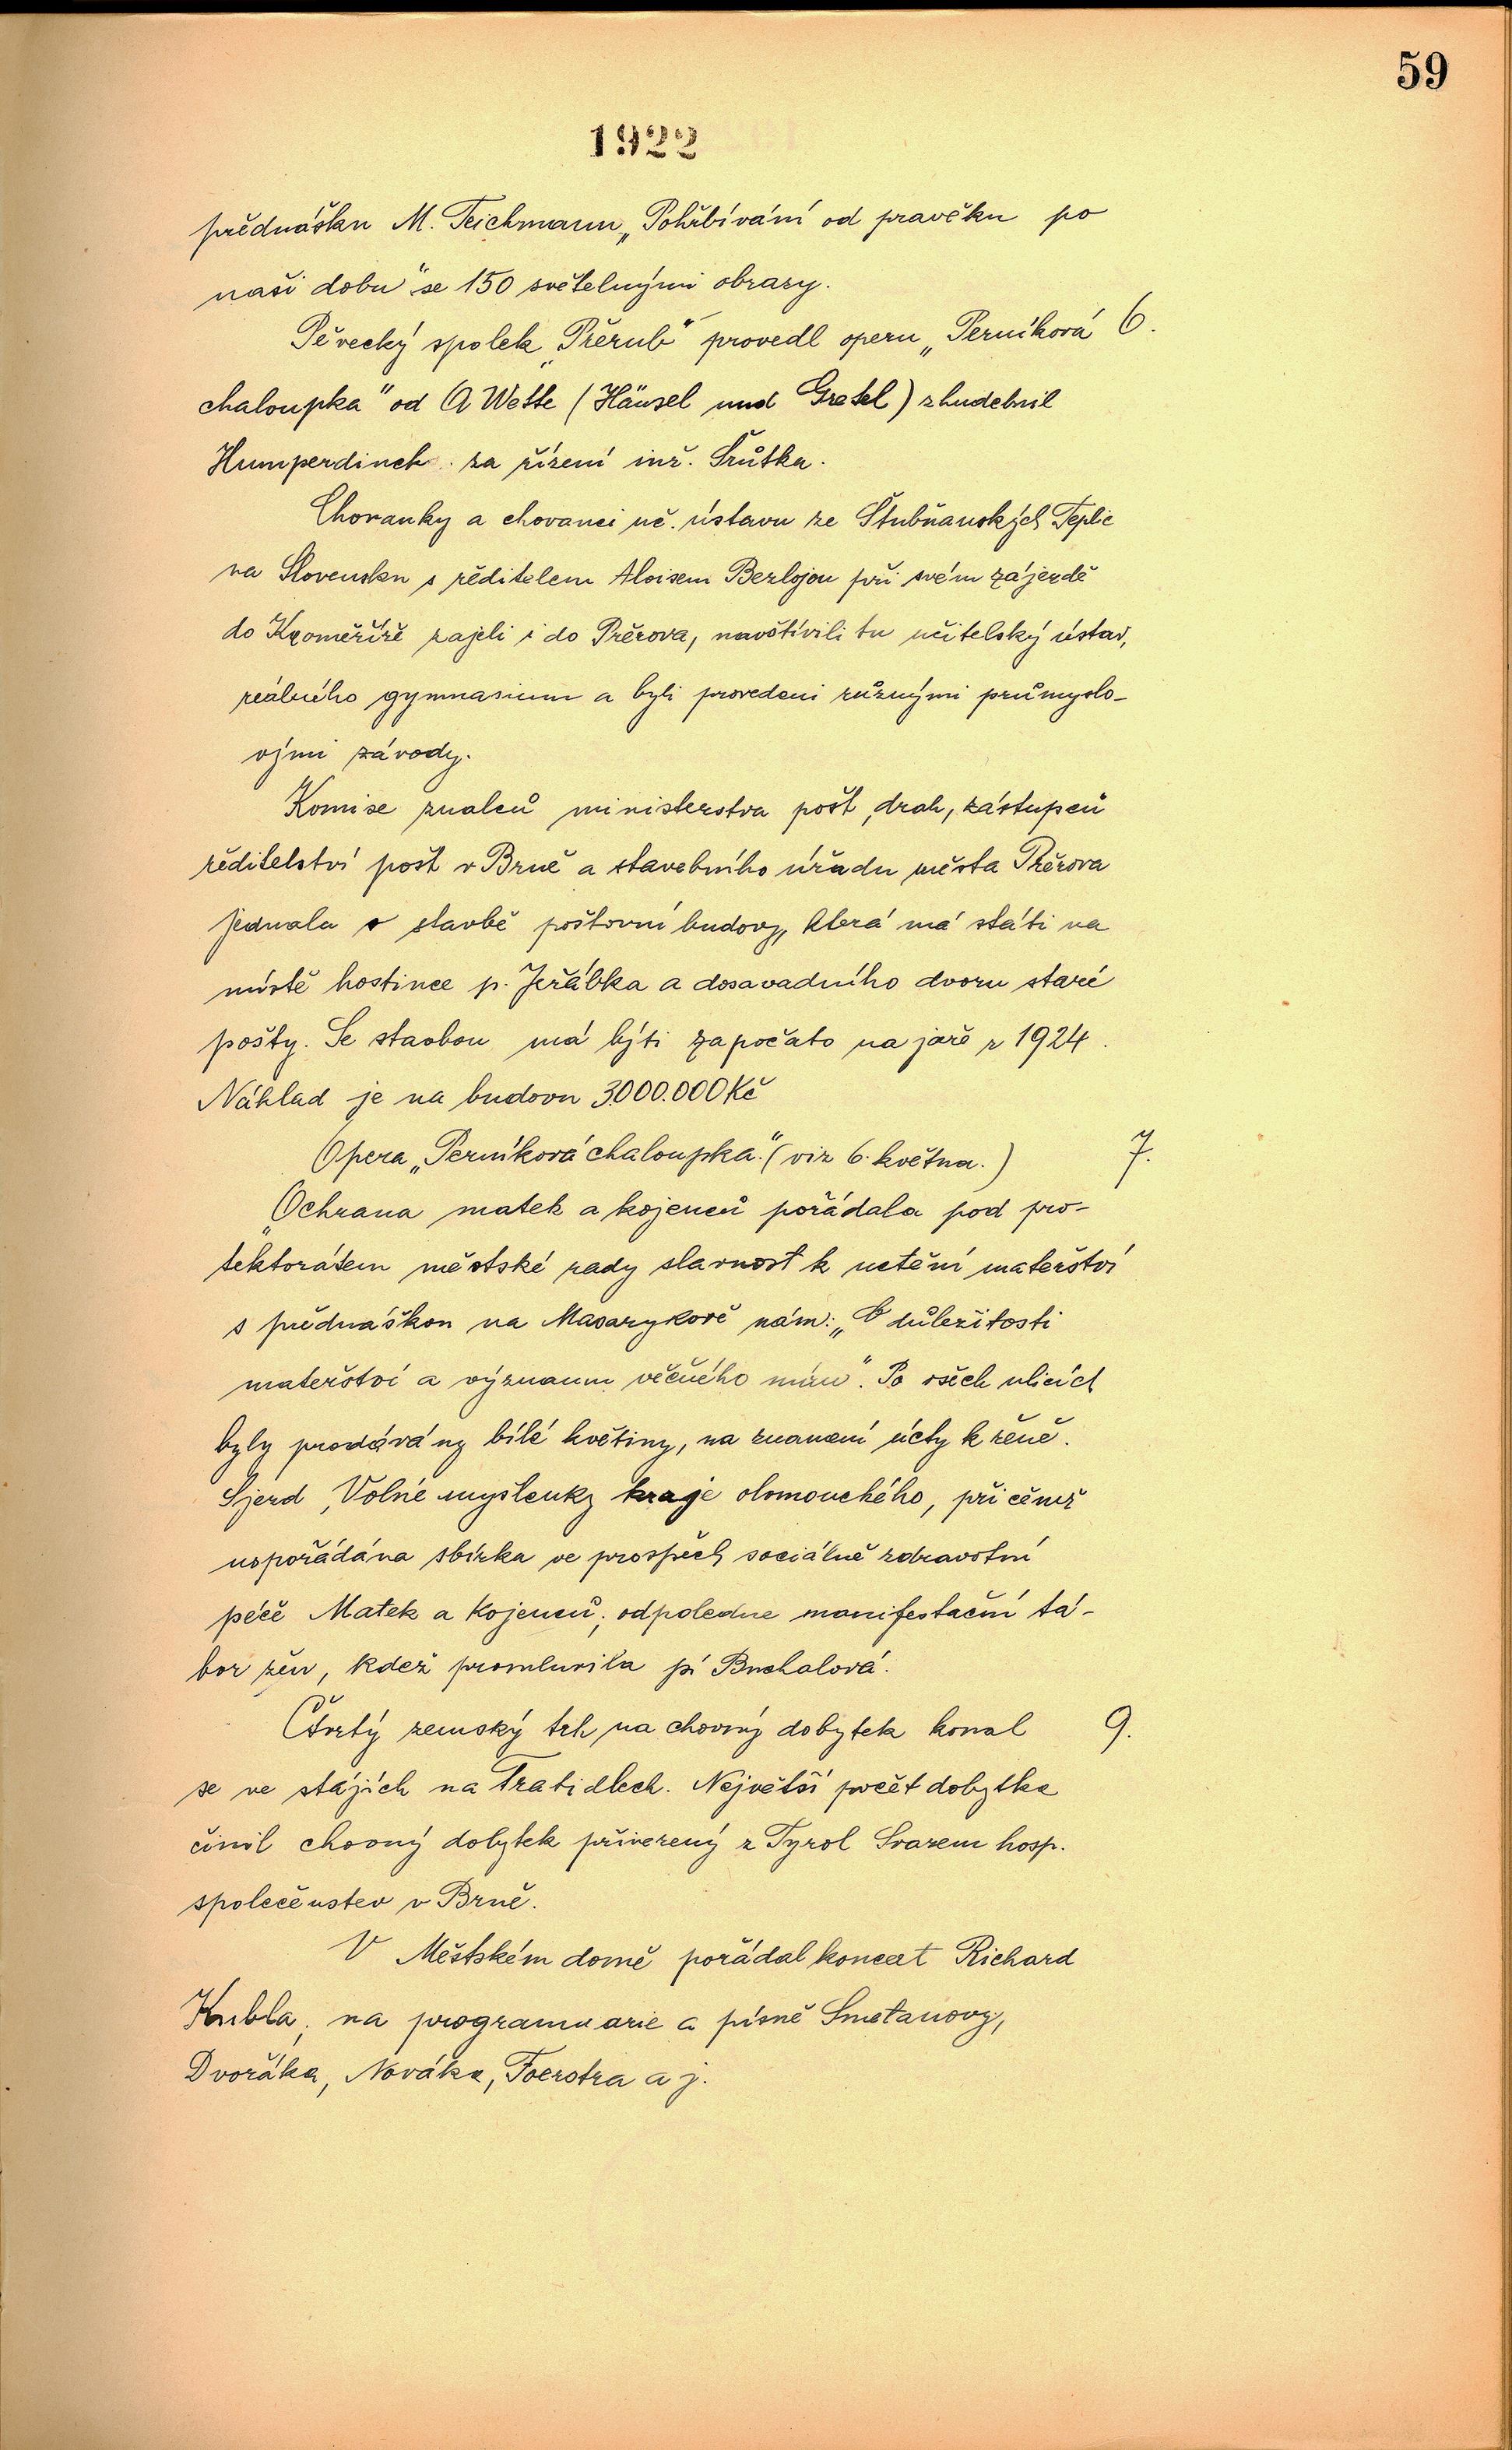 59
1922
přednášku M. Teichmann „Pohřbívání od pravěku po
naši dobu" se 150 světelnými obrazy.
Pěvecký spolek „Přerub" provedl operu „Perníková 6.
chaloupka" od A Wette (Hänsel und Gretel) zhudebnil
Humperdinck. za řízení inž. Šrůtka.
Chovanky a chovanci uč. ústavu ze Štubňanských Teplic
na Slovensku s ředitelem Aloisem Bezlojou při svém zájezdě
do Kroměříže zajeli i do Přerova, navštívili tu učitelský ústav,
reálného gymnasium a byli provedeni různými průmyslo-
vými závody.
Komise znalců ministerstva pošt, drah, zástupců
ředitelství pošt v Brně a stavebního úřadu města Přerova
jednala o stavbě poštovní budovy, která má státi na
místě hostince p. Jeřábka a dosavadního dvoru staré
pošty. Se stavbou má býti započato na jaře r 1924.
Náklad je na budovu 3000.000 Kč
Opera „Perníková chaloupka." (viz 6. května.) 7.
„Ochrana matek a kojenců pořádala pod pro-
tektorátem městské rady slavnost k uctění mateřství
s přednáškou na Masarykově nám: „O důležitosti
mateřství a významu věčného míru". Po všech ulicích
byly prodávány bílé květiny, na znamení úcty k ženě.
Sjezd „Volné myšlenky kraje olomouckého, při čemž
uspořádána sbírka ve prospěch sociálně zdravotní
péče Matek a Kojenců; odpoledne manifestační tá-
bor žen, kdež promluvila pí Buchalová.
Čtvrtý zemský trh na chovný dobytek konal 9.
se ve stájích na Tratidlech. Největší počet dobytka
činil chovný dobytek přivezený z Tyrol Svazem hosp.
společenstev v Brně.
V Městském domě pořádal koncert Richard
Kubla; na programu arie a písně Smetanovy,
Dvořáka, Nováka, Foerstra a j.